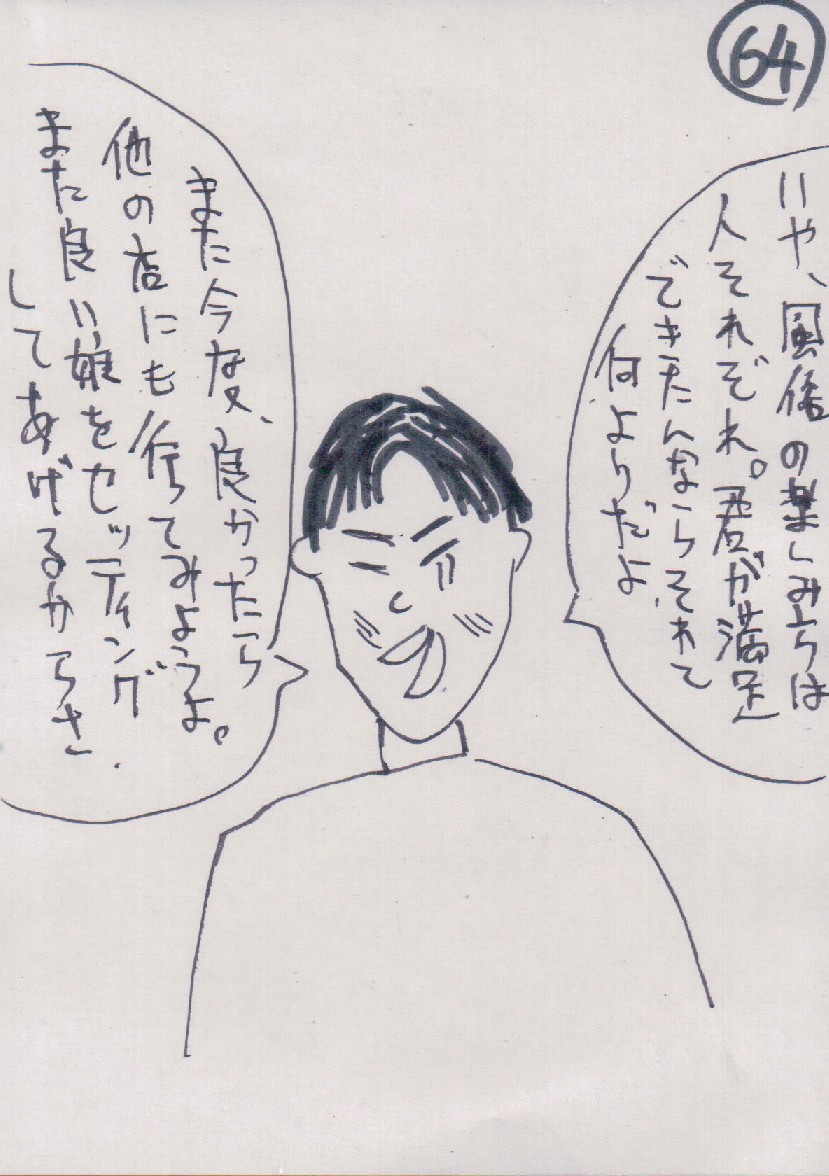 64
いや、風俗の楽しみ方は
人それぞれ。君が満足
できたんならそれで
何よりだよ
また今度、良かったら
他の店にも行ってみようよ。
また良い娘をセッティング
してあげるからさ